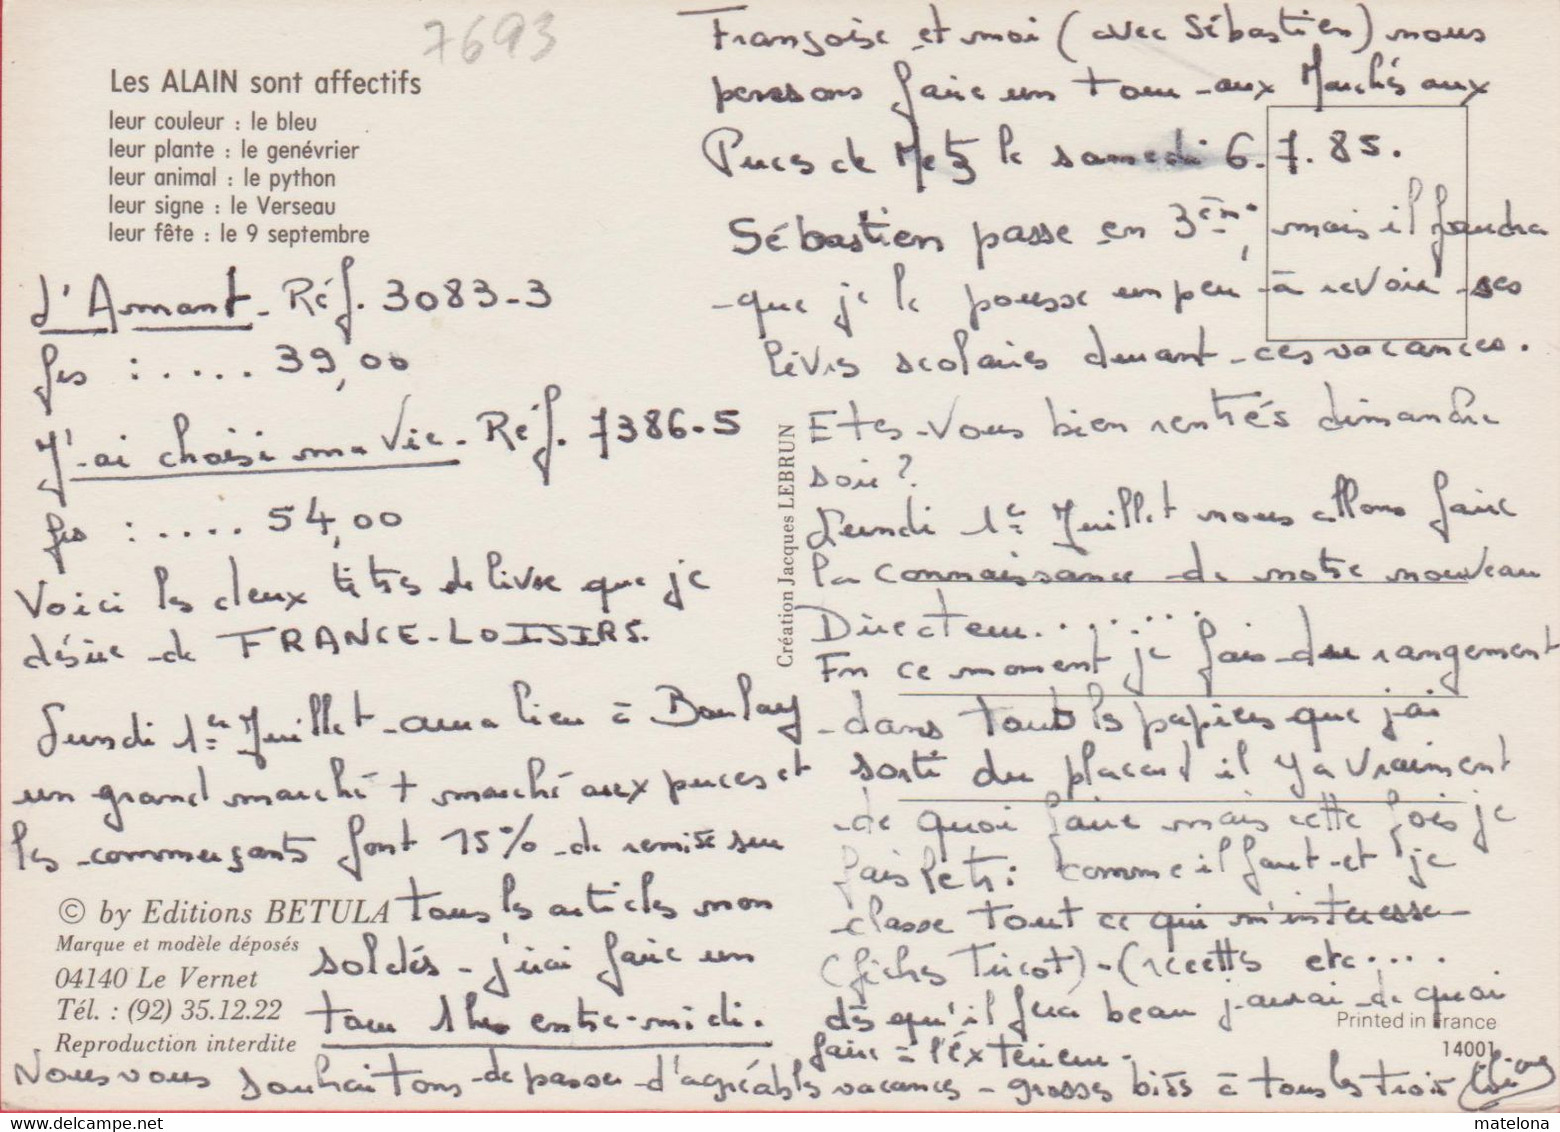 7693
Les ALAIN sont affectifs
leur couleur : le bleu
leur plante : le genévrier
leur animal : le python
leur signe : le Verseau
leur fête : le 9 septembre
L'Amant - Réf. 3083-3
frs : .... 39,00
J'ai choisi ma Vie - Réf. 7386-5
frs : .... 54,00
Voici les deux titres de livre que je
désire de FRANCE-LOISIRS.
Lundi 1er Juillet aura lieu à Boulay
un grand marché + marché aux puces et
les commerçants font 15% de remise sur
tous les articles non
soldés - j'irai faire un
tour 1h entre-midi.
© by Editions BETULA
Marque et modèle déposés
04140 Le Vernet
Tél. : (92) 35.12.22
Reproduction interdite
Création Jacques LEBRUN
Françoise et moi (avec Sébastien) nous
pensons faire un tour aux Marchés aux
Puces de Metz le samedi 6.7.85.
Sébastien passe en 3ème, mais il faudra
que je le pousse un peu à revoir ses
livres scolaires durant ces vacances.
Etes-Vous bien rentrés dimanche
soir ?
Lundi 1er Juillet nous allons faire
la connaissance de notre nouveau
Directeur........
En ce moment je fais du rangement
dans tout les papiers que j'ai
sorti du placard il y a vraiment
de quoi faire mais cette fois je
fais le tri comme il faut et je
classe tout ce qui m'intéresse
(fiches Tricot) - (recettes etc....
dès qu'il fera beau j'aurai de quoi
faire à l'éxtérieur.
Printed in France
14001
Nous vous souhaitons de passer d'agréables vacances - grosses bises à tous les trois
matelona